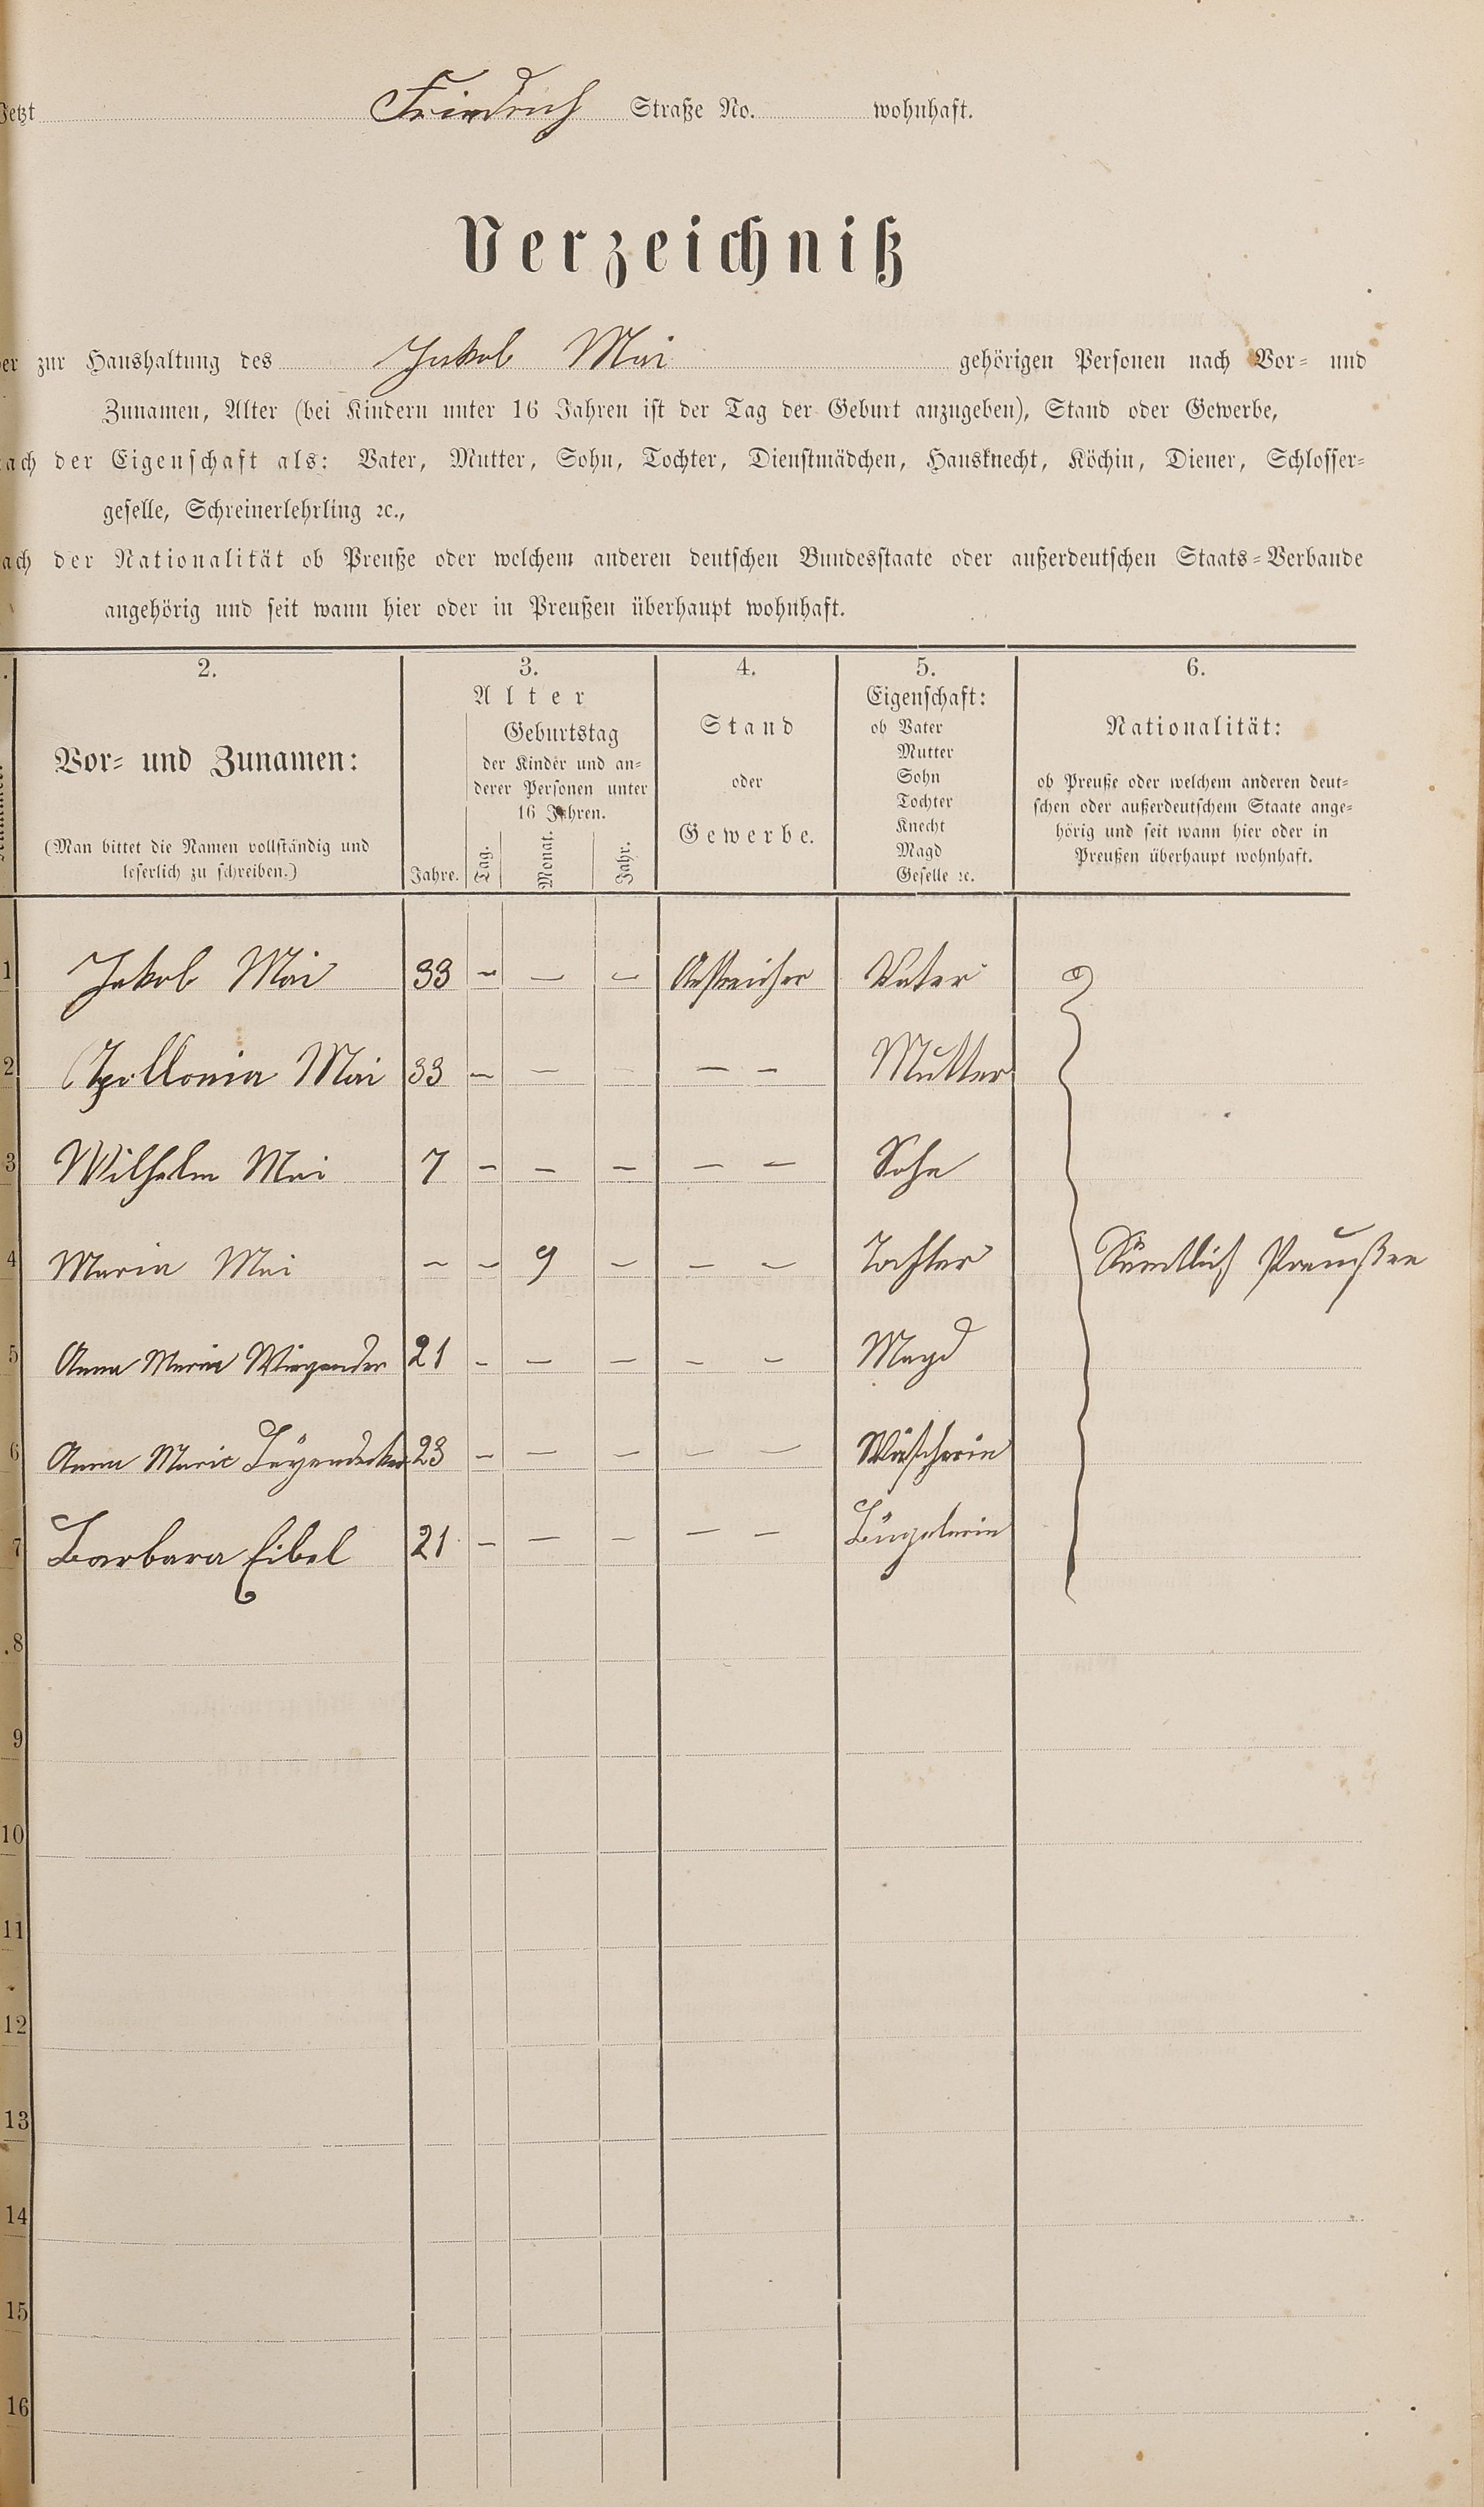 Jetzt Friedrich Straße No. wohnhaft.
Verzeichniß
der zur Haushaltung des Jakob Mai gehörigen Personen nach Vor- und
Zunamen, Alter (bei Kindern unter 16 Jahren ist der Tag der Geburt anzugeben), Stand oder Gewerbe,
nach der Eigenschaft als: Vater, Mutter, Sohn, Tochter, Dienstmädchen, Hausknecht, Köchin, Diener, Schlosser-
geselle, Schreinerlehrling ꝛc.,
nach der Nationalität ob Preuße oder welchem anderen deutschen Bundesstaate oder außerdeutschen Staats-Verbande
angehörig und seit wann hier oder in Preußen überhaupt wohnhaft.
2. 3. 4. 5. 6.
Vor- und Zunamen:
(Man bittet die Namen vollständig und
leserlich zu schreiben.)
Alter
Jahre.
Geburtstag
der Kinder und an-
derer Personen unter
16 Jahren.
Tag. Monat. Jahr.
Stand
oder
Gewerbe.
Eigenschaft:
ob Vater
Mutter
Sohn
Tochter
Knecht
Magd
Geselle ꝛc.
Nationalität:
ob Preuße oder welchem anderen deut-
schen oder außerdeutschem Staate ange-
hörig und seit wann hier oder in
Preußen überhaupt wohnhaft.
1 Jakob Mai 33 – – – Anstreicher Vater
2 Apollonia Mai 33 – – – – – Mutter
3 Wilhelm Mai 7 – – – – – Sohn
4 Maria Mai – – 9 – – – Tochter Sämtlich Preußen
5 Anna Maria 21 – – – – – Magd
6 Anna Marie Leyendecker 23 – – – – – Wäscherin
7 Barbara Eibel 21 – – – – – Bügelerin
8
9
10
11
12
13
14
15
16